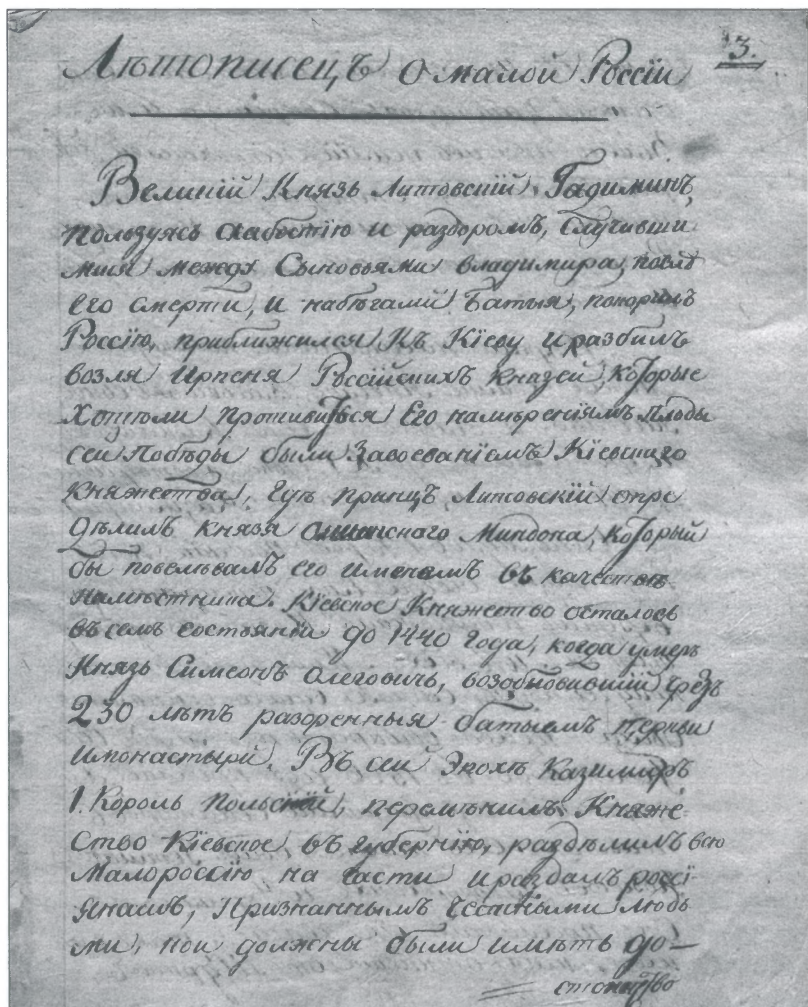 3.
Лѣтописецъ о малой Россіи
Великій Князь Литовскій, Гадиминъ,
пользуясь слабостію и раздоромъ, случивши
мися между Сыновьями владимира, послѣ
его смерти, и набѣгами Батыя, покорилъ
Россію, приближился къ Кіеву и разбилъ
возля Ирпеня Россійскихъ князей, которые
хотѣли противиться Его намѣреніямъ плоды
сей Побѣды были Завоеваніемъ Кіевскаго
княжества, гдѣ принцъ Литовскій опре
дѣлилъ князя Миндова, который
бы повелѣвалъ его именемъ въ качествѣ
намѣстника. Кіевское Княжество осталось
въ семъ состояніи до 1440 года, когда умеръ
Князь Симеонъ Олеговичь, возобновившій чрезъ
230 лѣтъ разоренныя батыемъ церкви
и монастыри. Въ сей Эпохѣ Казимиръ
1. Король Польскій, перемѣнилъ Княже-
ство Кіевское въ губернію, раздѣлилъ всю
Малороссію на части и раздалъ россі
янамъ, Признаннымъ честными людь
ми, кои должны были имѣть до—
стоинство